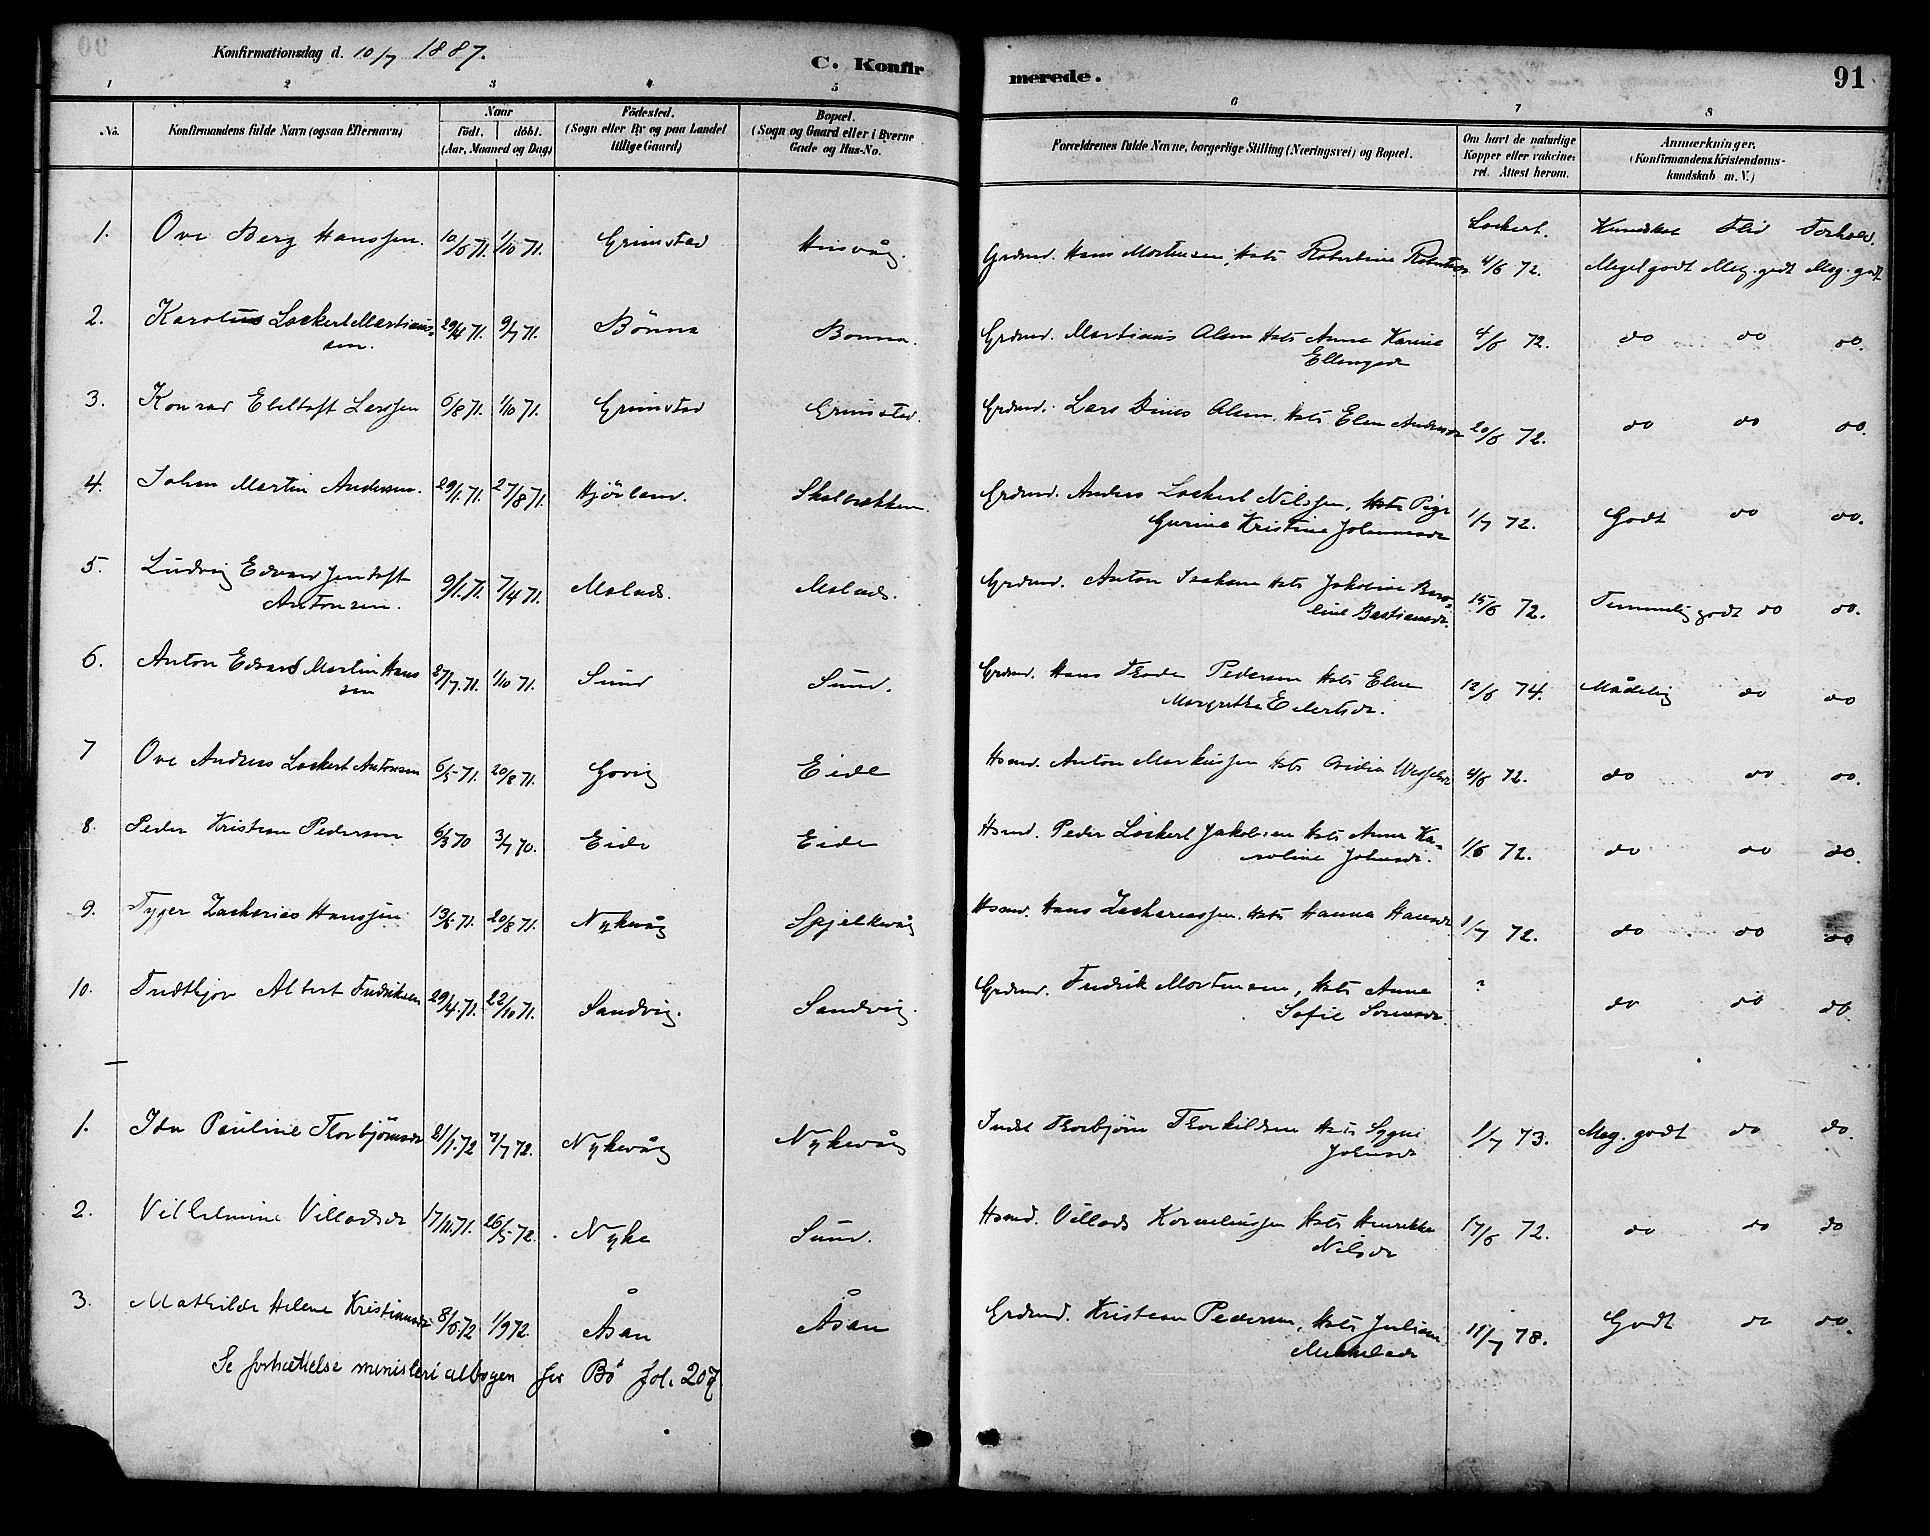 Konfirmationsdag d. 10/7 1887.
C. Konfirmerede.
91
1 2 3 4 5 6 7 8
No.
Konfirmandens fulde Navn (ogsaa Efternavn)
Naar
födt. döbt.
(Aar, Maaned og Dag)
Födested.
(Sogn eller By og paa Landet
tillige Gaard)
Bopæl.
(Sogn og Gaard eller i Byerne
Gade og Hus-No.
Forældrenes fulde Navne, borgerlige Stilling (Næringsvei) og Bopæl.
Om havt de naturlige
Kopper eller vakcine-
ret. Attest herom.
Anmærkninger.
(Konfirmandens Kristendoms-
kundskab m. V.)
Lockert. Kundskab Flid Forhold.
1. Ove Berg Hanssen. 10/6 71. 1/10 71. Grimstad Husvåg. Grdmd. Hans Mortensen, Hst: Robertine 4/6 72. Meget godt Meg. godt Meg. godt
2. Karolus Lockert Martinus-
sen. 29/4 71. 9/7 71. Bönna Bonna. Grdmd. Martinus Olsen Hst: Anne Karine
Ellingsdr 4/6 72. do do do.
3. Konrad Ebeltoft Larssen 6/8 71. 1/10 71. Grimstad Grimstad. Grdmd. Lars Olsen, Hst: Elen Andersdr 20/6 72. do do do.
4. Johan Martin Andersen. 29/1. 71. 27/8 71. Hjörland. Skalbrekken. Grdmd. Anders Lockert Nilssen, Hst: Pige
Gurine Kristine Johannesdr 1/7 72. Godt do do.
5. Ludvig Edvard Jentoft
Antonsen. 9/1. 71. 7/4 71. Malnes. Malnes. Grdmd. Anton Isaksen Hst: Jakobine Bero-
line Bastiansdr. 15/6 72. Temmelig godt do do.
6. Anton Edvard Martin Hans
sen 27/7. 71. 1/10 71. Sund Sund. Grdmd. Hans Pedersen Hst: Elen
Margrethe Eilertsdr. 12/6 74. Mådelig do do
7 Ove Andreas Lockert Antonsen 6/5 71. 20/8 71. Govig Eide Hsmd. Anton Markussen Hst: 4/6 72. do do do.
8. Peder Kristian Pedersen 6/3 70 3/7 70. Eide Eide Hsmd. Peder Lockert Jakobsen Hst: Anne Ka-
roline Johnsdr. 1/6 72. do do do.
9. Tyger Zacharias Hanssen 13/6 71. 20/8 71. Nykvåg Spjelkevåg Hsmd. Hans Zachariassen. Hst: Hanna Hansdr 1/7 72. do do do
10. Fridthjov Albert Fredriksen 29/4. 71. 22/10 71. Sandvig. Sandvig. Grdmd. Fredrik Mortensen, Hst: Anne
Sofie Sörensdr. ? do do do.
1. Ida Pauline Thorbjörnsdr 21/1. 72 7/7 72. Nykevåg Nykevåg Indst Thorbjörn Thorkildsen Hst: Sygni
Johnsdr 1/7 73. Meg. godt do do.
2. Vilhelmine Villadsdr 17/10. 71. 26/5 72. Nyke Sund. Hsmd. Villads Korneliussen Hst: Henrikke
Nilsdr 17/6 72. do do do
3. Mathilde Helene Kristiansdr 8/6. 72 1/9 72. Åsan Åsan Grdmd. Kristian Pedersen, Hst: Juliane
Mikkelsdr 11/7 78. Godt do do.
Se fortsættelse ministeri albogen for Bö fol. 207